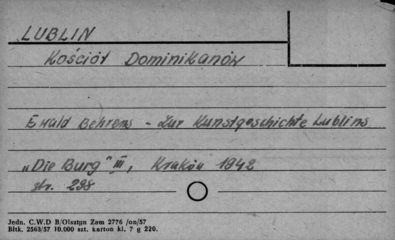 LUBLIN
Kościół Dominikanów
Ewald Behrens - Zur Kunstgeschichte Lublins
„Die Burg" III, Kraków 1942
str. 298
Jedn. C.W.D B/Olsztyn Zam 2776 /on/57
Bltk. 2563/57 10.000 szt. karton kl. 7 g 220.